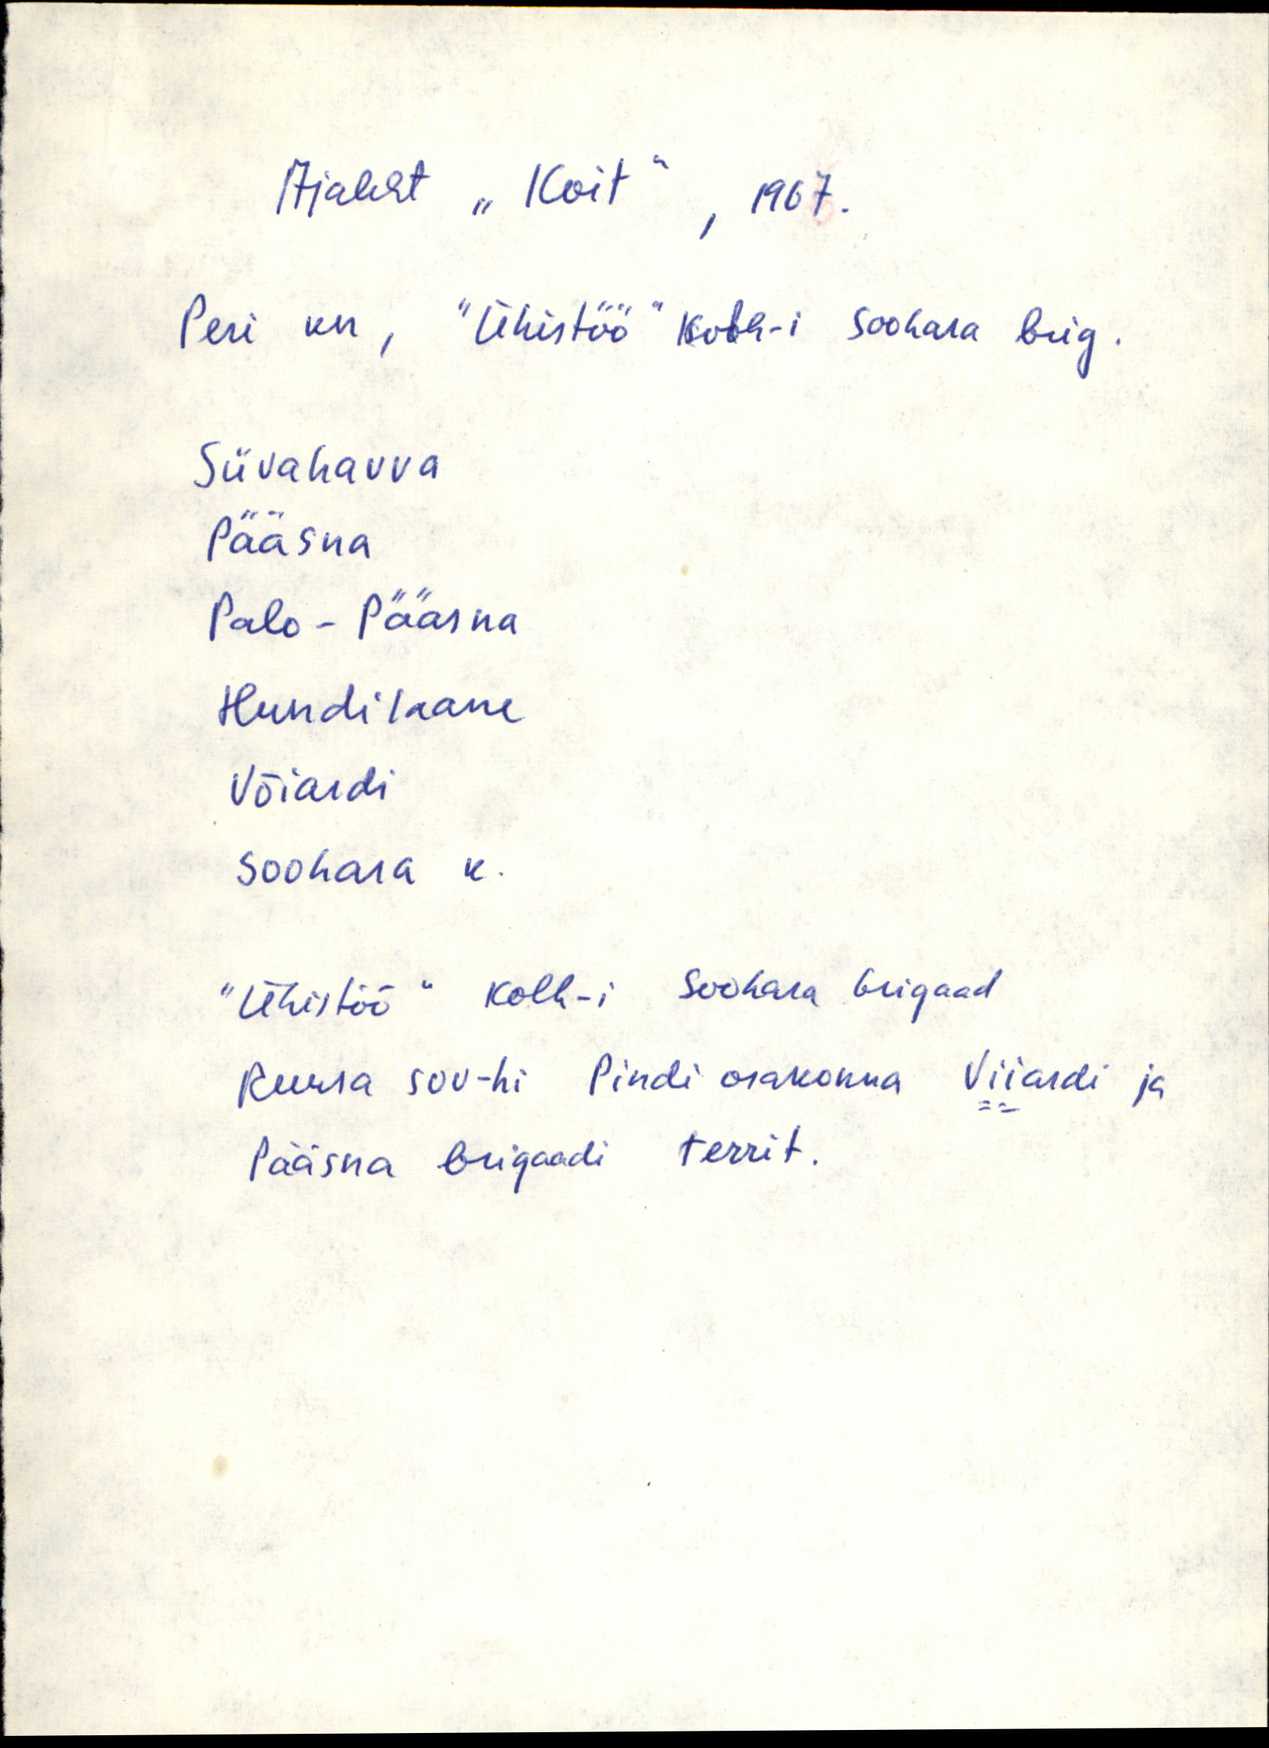 Ajaleht „Koit“, 1967.
Peri kn, "Ühistöö" kolh-i Soohara brig.
Süvahavva
Pääsna
Palo-Pääsna
Hundilaane
Võiardi
Soohara k.
"Ühistöö" kolh-i Soohara brigaad
Ruusa sov-hi Pindi osakonna Viiardi ja
Pääsna brigaadi territ.